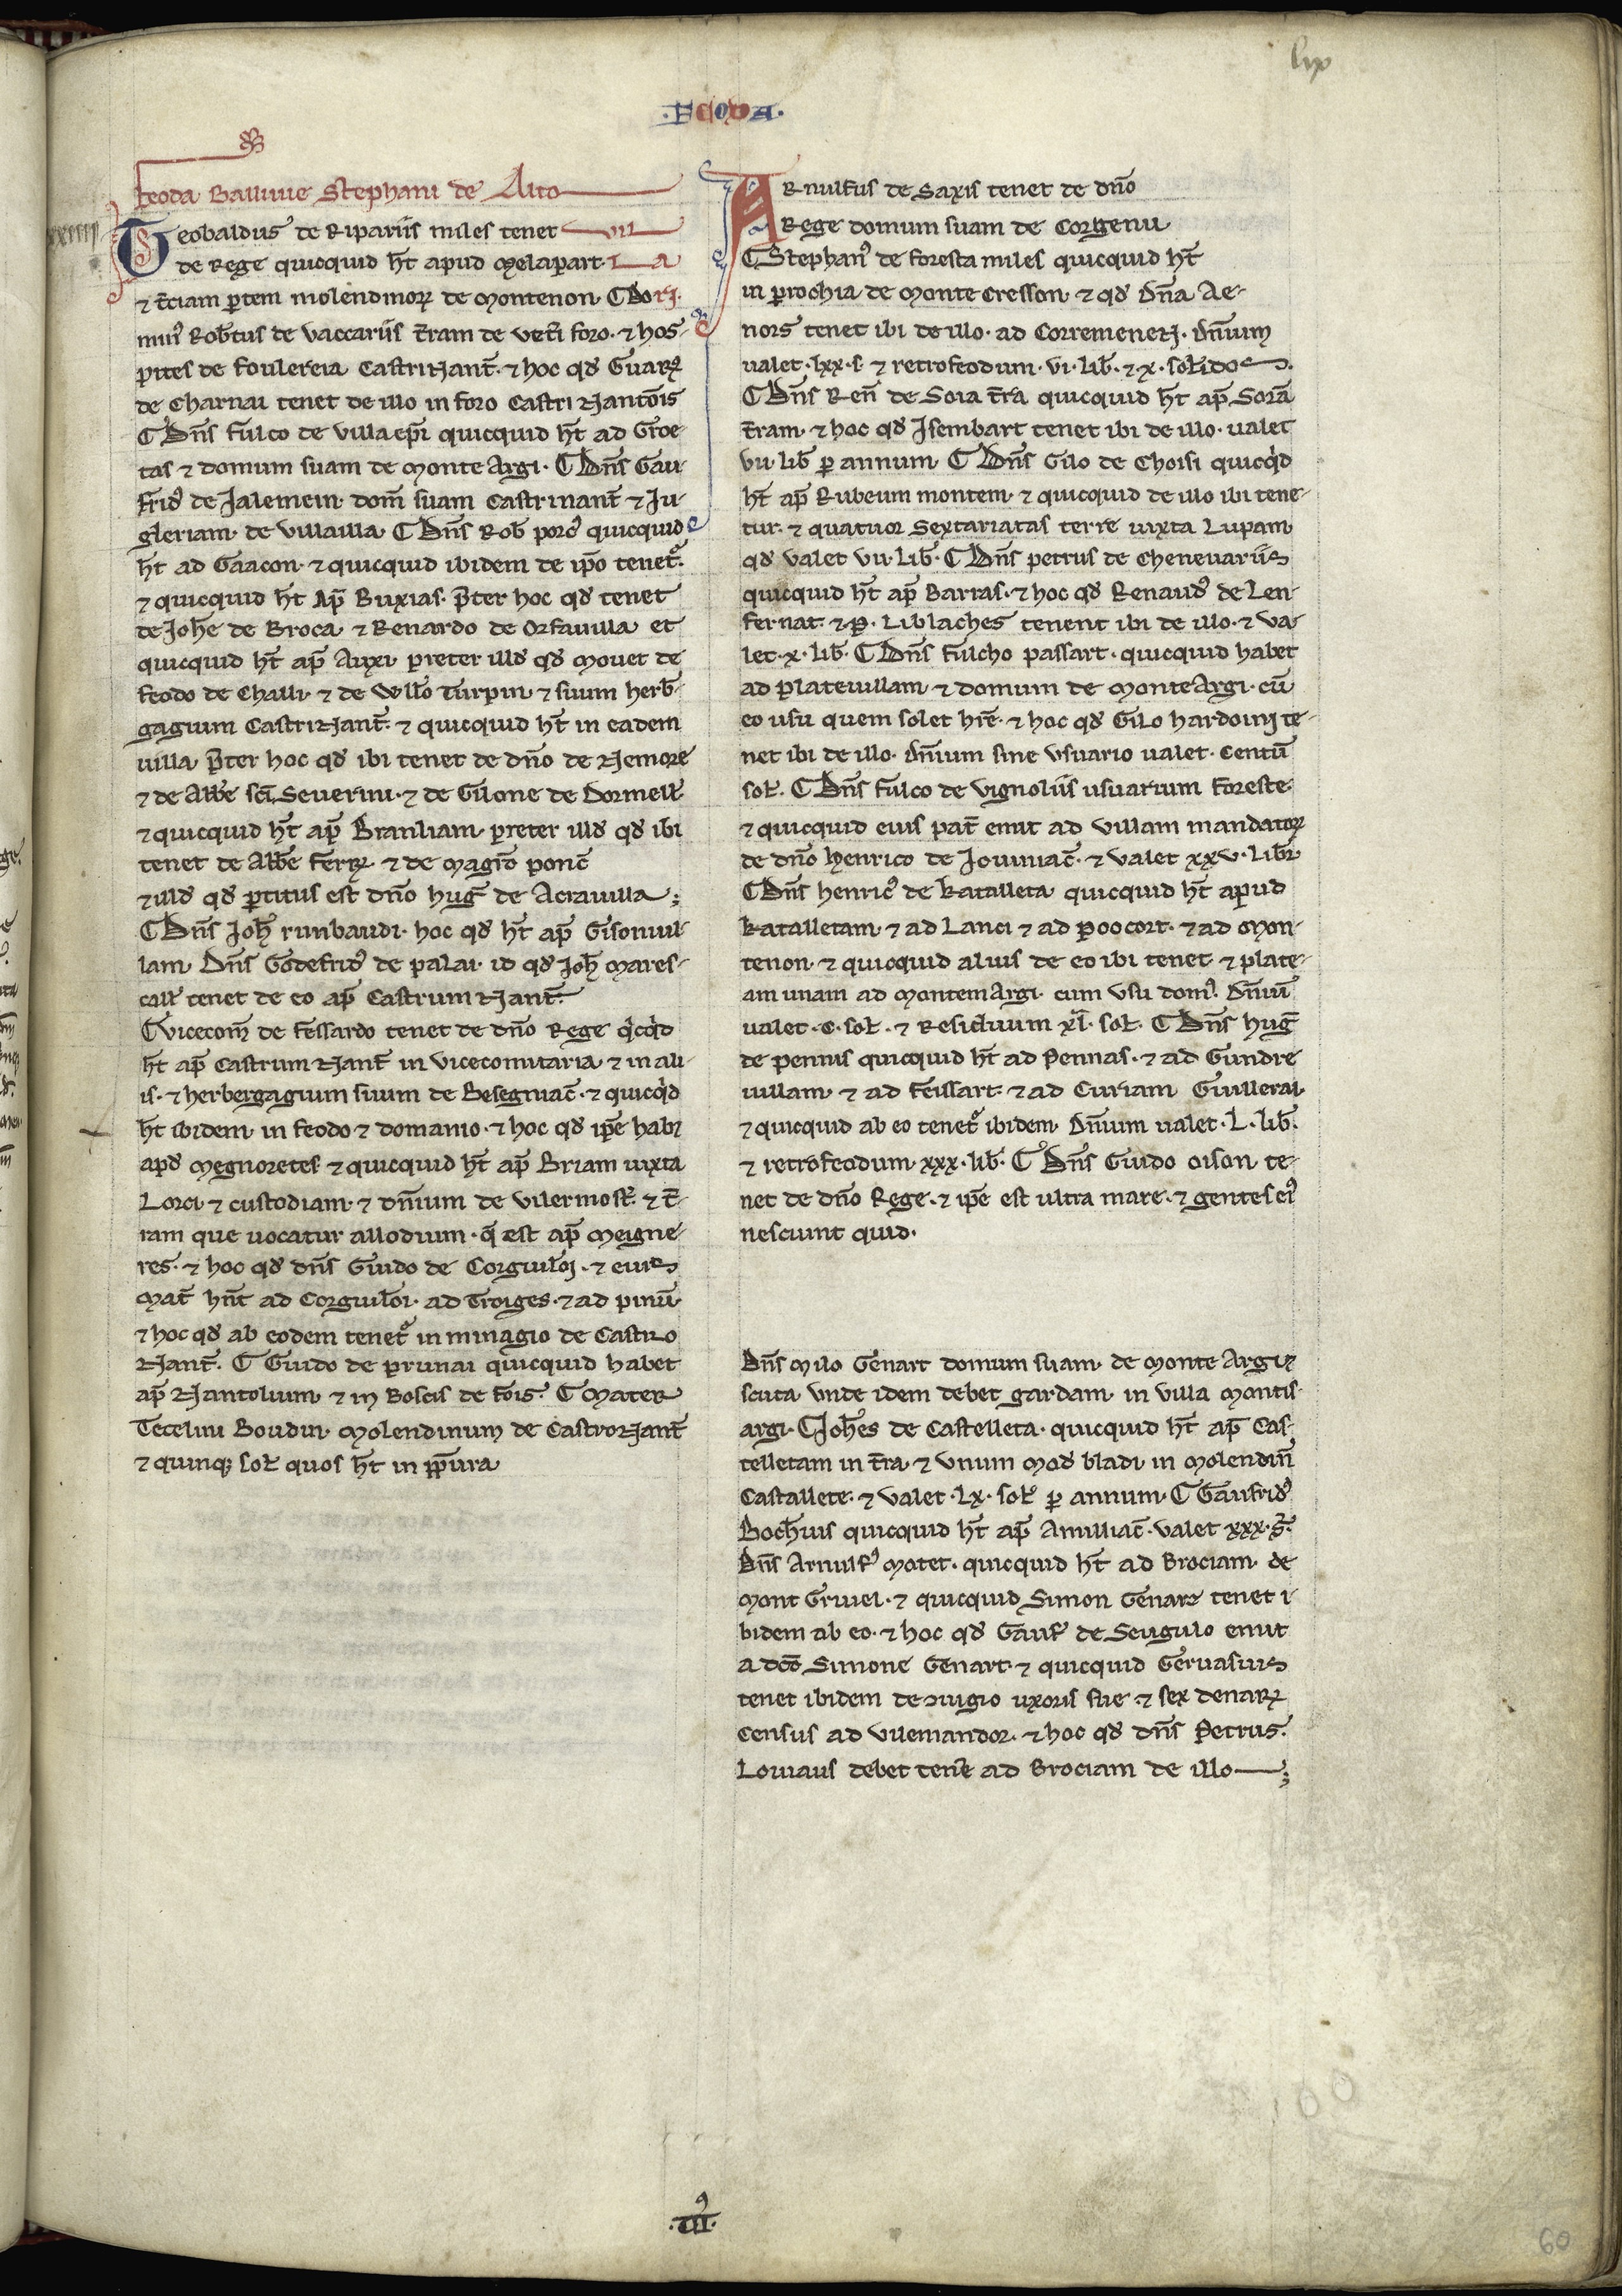 lix
·FEODA·
feoda Ballivie Stephani de Alto
vil
xxiiij
Teobaldus de Ripariis miles tenet
de Rege quicquid ht̄ apud Melapart· la
⁊ t̄ciam ꝑtem molendinoꝝ de Montenon ¶ Do rı.
minꝰ Rob̄tus de Vaccariis t̄ram de vet̄i foro· ⁊ hos-
pites de foulereia CastriNant̄· ⁊ hoc qd̄ Guarꝰ
de Charnai tenet de illo in foro Castri Nantōis
¶ Dn̄s fulco de villaep̄i quicquid ht̄ ad Groe-
tas ⁊ domum suam de Monte Argi· ¶ Dn̄s Gau-
fridꝰ de Jalemein dom̄ suam Castrinant̄ ⁊ Ju-
gleriam de villailla ¶ Dn̄s Rob̄ porcꝰ quicquid
ht̄ ad Gaacon· ⁊ quicquid ibidem de ip̄o tenet᷑·
⁊ quicquid ht̄ Ap̄ Buxias· p̄ter hoc qd̄ tenet
de Joh̄e de Broca ⁊ Renardo de Orfauilla et
quicquid ht̄ ap̄ Auxi· preter illd̄ qd̄ mouet de
feodo de Challi· ⁊ de Will̄o Turpin ⁊ suum herb̄-
gagium CastriNant̄· ⁊ quicquid ht̄ in eadem
uilla p̄ter hoc qd̄ ibi tenet de dn̄o de Nemore
⁊ de Abb̄e sc̄i Seuerini· ⁊ de Gilone de Dormell̄·
⁊ quicquid ht̄ ap̄ Branliam· preter illd̄ qd̄ ibi
tenet de Abb̄e ferrꝝ· ⁊ de magr̄o ponc̄
⁊ illd̄ qd̄ ꝑtitus est dn̄o huḡ de Acrauilla ;
¶ Dn̄s Joh̄ runbaudi· hoc qd̄ ht̄ ap̄ Gisonuil-
lam· Dn̄s Godefridꝰ de palai· id qd̄ Joh̄ mares-
call̄ tenet de eo ap̄ Castrum Nant̄·
¶ Vicecom̄ de fessardo tenet de dn̄o Rege q̇cq̇d
ht̄ ap̄ Castrum Nant̄ in vicecomitaria ⁊ in ali-
is· ⁊ herbergagium suum de Besegniac̄· ⁊ quicq̇d
ht̄ ibidem in feodo ⁊ domanio· ⁊ hoc qd̄ ip̄e habꝫ
apd̄ Megnoretes ⁊ quicquid ht̄ ap̄ Briam iuxta
Lorci ⁊ custodiam· ⁊ dn̄ium de Vilermost̄· ⁊ t̄-
ram que uocatur allodium· q̄ est ap̄ Meigne-
res· ⁊ hoc qd̄ dn̄s Guido de Corguiloi· ⁊ eius
mat̄ hn̄t ad Corguiloi· ad Troiges· ⁊ ad pinū·
⁊ hoc qd̄ ab eodem tenet᷑ in minagio de Castro
Nant̄· ¶ Guido de prunai quicquid habet
ap̄ Nantolium· ⁊ in Boscis de fois· ¶ Mater
Tecelini Boudin· Molendinum de CastroNant̄
⁊ quinqꝫ sol̄ quos ht̄ in pp̄itura
Arnulfus de Saxis tenet de dn̄o
Rege domum suam de Corgenu
¶ Stephanꝰ de foresta miles quicquid ht̄
in parochia de Monte Cresson· ⁊ qd̄ Dn̄a Ae-
nors tenet ibi de illo· ad Corremenerj· dn̄ium
ualet· lxx· s· ⁊ retrofeodum· vi· lib̄· ⁊· x· solidos·
¶ Dn̄s Ren̄ de Soia t̄ra quicquid ht̄ ap̄ Soiā
t̄ram· ⁊ hoc qd̄ Isembart tenet ibi de illo· ualet
vii· lib̄ ꝑ annum ¶ Dn̄s Gilo de Choisi quicq̇d
ht̄ ap̄ Rubeum montem· ⁊ quicquid de illo ibi tene-
tur· ⁊ quatuor Sextariatas terre iuxta Lupam
qd̄ valet vii· lib̄· ¶ Dn̄s petrus de Cheneuariis
quicquid ht̄ ap̄ Barras· ⁊ hoc qd̄ Renaudꝰ de Len-
fernat· ⁊ P· Liblaches tenent ibi de illo· ⁊ va-
let· x· lib̄· ¶ Dn̄s fulcho passart· quicquid habet
ad plateuillam· ⁊ domum de Monte Argi· cū
eo usu quem solet hr̄e· ⁊ hoc qd̄ Gilo hardoinj te-
net ibi de illo· dn̄ium sine vsuario ualet· Centū
sol̄· ¶ Dn̄s fulco de vignoliis usuarium foreste·
⁊ quicquid eius pat̄ emit ad villam mandatoꝝ
de dn̄o henrico de Jouiniac̄· ⁊ valet xxv· libr̄
¶ Dn̄s henricꝰ de katalleta quicquid ht̄ apud
katalletam· ⁊ ad Lanci ⁊ ad poocort· ⁊ ad mon-
tenon· ⁊ quicquid alius de eo ibi tenet· ⁊ plate-
am unam ad montemArgi· cum vsu domꝰ· Dn̄iū
ualet· c· sol̄· ⁊ Residuum xl̄· sol̄· ¶ Dn̄s huḡ
de pennis quicquid ht̄ ad pennas· ⁊ ad Gundre
uillam· ⁊ ad feissart· ⁊ ad Curiam Guillerai·
⁊ quicquid ab eo tenet᷑ ibidem· dn̄ium ualet· L· lib̄·
⁊ retrofeodum xxx· lib̄· ¶ Dn̄s Guido oison te-
net de dn̄o Rege· ⁊ ip̄e est ultra mare· ⁊ gentes eiꝰ
nesciunt quid·
Dn̄s Milo Genart domum suam· de Monte Argi
scuta vnde idem debet gardam in villa montis-
argi· ¶ Joh̄es de Castelleta· quicquid ht̄ ap̄ Cas-
telletam in t̄ra· ⁊ vnum mod̄ bladi in molendin̄
Castallete· ⁊ valet· lx· sol̄ ꝑ annum· ¶ Gaufridꝰ
Bocheius quicquid ht̄ ap̄ Amilliac̄· valet xxx· s̄·
Dn̄s Arnulfꝰ motet· quicquid ht̄ ad Brociam de
mont Griuel· ⁊ quicquid Simon Genart tenet i-
bidem ab eo· ⁊ hoc qd̄ Gauf̄ de Seugulo emit
a dc̄o Simone Genart· ⁊ quicquid Geruasius
tenet ibidem de ꝯiugio uxoris sue· ⁊ sex denarꝝ
Census ad vilemandor· ⁊ hoc qd̄ dn̄s Petrus
Louiaus debet tenēe ad Brociam de illo ;
·IIIꝰ·
60